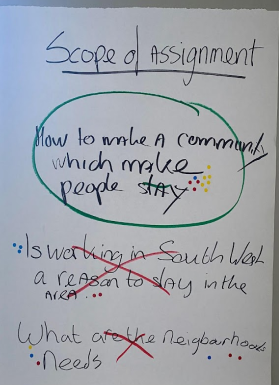 Scope of Assignment
How to make A community
which make
people stay
Is working in South West
a reason to stay in the
area.
What are the Neigbourhoods
Needs